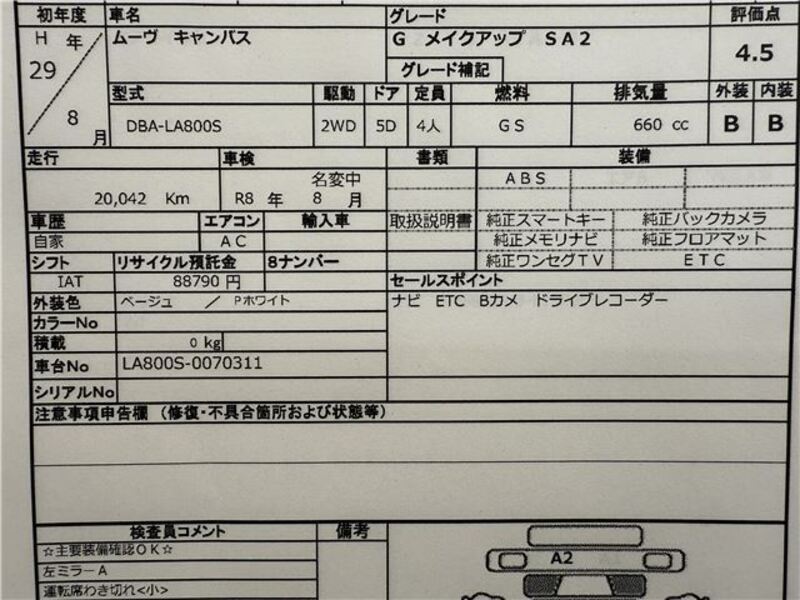 初年度 車名 グレード 評価点
H 年 29 8 月
ムーヴ キャンバス
G メイクアップ SA2
4.5
グレード補記
型式 駆動 ドア 定員 燃料 排気量 外装 内装
DBA-LA800S 2WD 5D 4人 GS 660 cc B B
走行 車検 書類 装備
名変中
20,042 Km R8 年 8 月
ABS
車歴 エアコン 輸入車 取扱説明書 純正スマートキー 純正バックカメラ
自家 AC 純正メモリナビ 純正フロアマット
シフト リサイクル預託金 8ナンバー 純正ワンセグTV ETC
IAT 88790 円 セールスポイント
外装色 ベージュ / Pホワイト ナビ ETC Bカメ ドライブレコーダー
カラーNo
積載 0 kg
車台No LA800S-0070311
シリアルNo
注意事項申告欄 (修復・不具合箇所および状態等)
検査員コメント 備考
☆主要装備確認OK☆
左ミラーA
運転席わき切れ<小>
A2